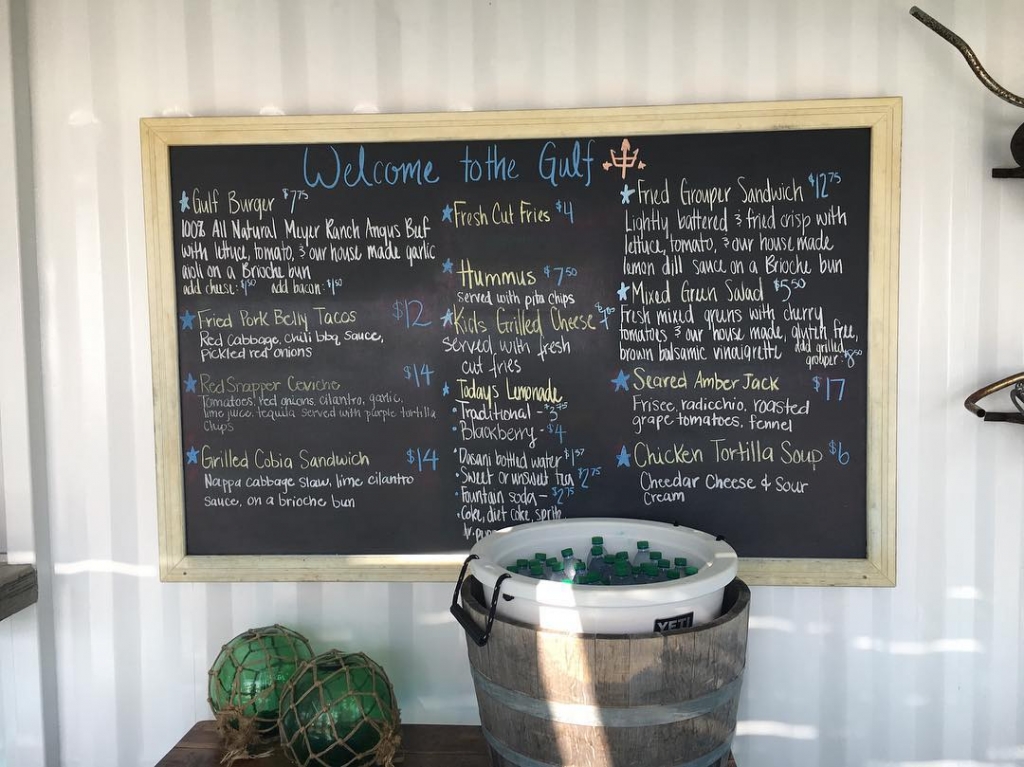 Welcome to the Gulf
Gulf Burger $7.75
100% All Natural Meyer Ranch Angus Beef
with lettuce, tomato, & our house made garlic
aioli on a Brioche bun
add cheese: $1.50 add bacon: $1.50
Fried Pork Belly Tacos $12
Red cabbage, chili bbq sauce,
pickled red onions
Red Snapper Ceviche $14
Tomatoes, red onions, cilantro, garlic,
lime juice, tequila served with purple tortilla
chips
Grilled Cobia Sandwich $14
Nappa cabbage slaw, lime cilantro
sauce, on a brioche bun
Fresh Cut Fries $4
Hummus $7.50
served with pita chips
Kids Grilled Cheese
served with fresh
cut fries
Todays Lemonade
Traditional - $3.75
Blackberry - $4
Dasani bottled water
Sweet or unsweet tea $2.75
Fountain soda - $2.75
Coke, diet coke, sprite
Fried Grouper Sandwich $12.75
Lightly battered & fried crisp with
lettuce, tomato, & our house made
lemon dill sauce on a Brioche bun
Mixed Green Salad $5.50
Fresh mixed greens with cherry
tomatoes & our house made, gluten free,
brown balsamic vinaigrette add grilled
grouper: $8.50
Seared Amber Jack $17
Frisee, radicchio, roasted
grape tomatoes, fennel
Chicken Tortilla Soup $6
Cheedar Cheese & Sour
Cream
YETI